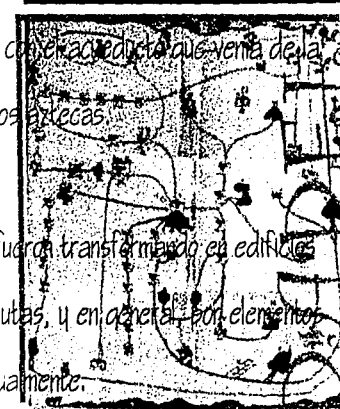 con el acueducto que venía de la
os aztecas.
fueron transformando en edificios
utas, y en general, son elementos
uamente.